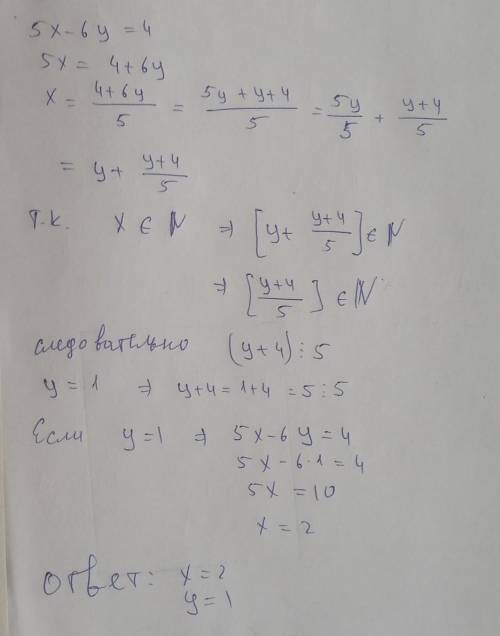 5x-6y=4
5x= 4+6y
x= (4+6y)/5 = (5y+y+4)/5 = 5y/5 + (y+4)/5
= y+ (y+4)/5
т.к. x ∈ N ⇒ [y+ (y+4)/5] ∈ N
⇒ [(y+4)/5] ∈ N
следовательно (y+4)⋮5
y=1 ⇒ y+4=1+4=5⋮5
Если y=1 ⇒ 5x-6y=4
5x-6·1=4
5x=10
x=2
ответ: x=2
y=1